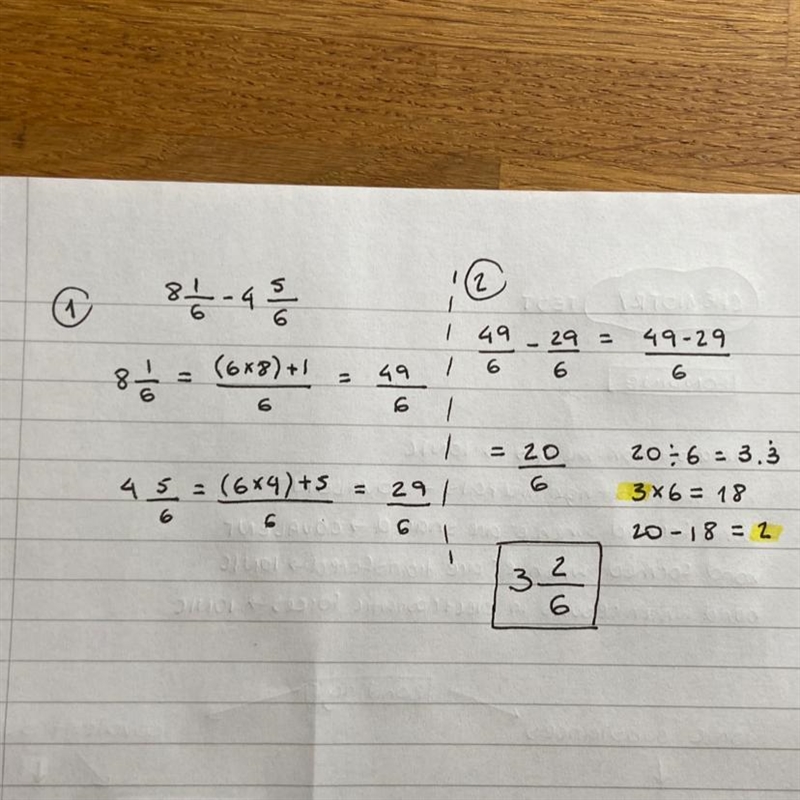 ① 8 1/6 - 4 5/6
8 1/6 = (6×8)+1/6 = 49/6
4 5/6 = (6×4)+5/6 = 29/6
②
49/6 - 29/6 = 49-29/6
= 20/6
20÷6 = 3.3̇
3×6 = 18
20-18 = 2
3 2/6